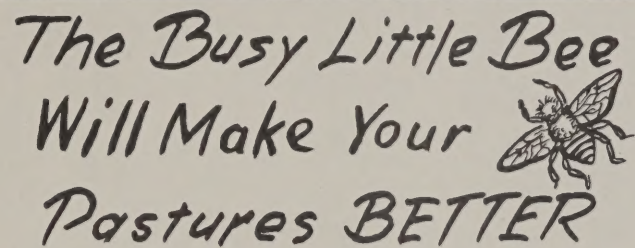 The Busy Little Bee
Will Make Your
Pastures BETTER